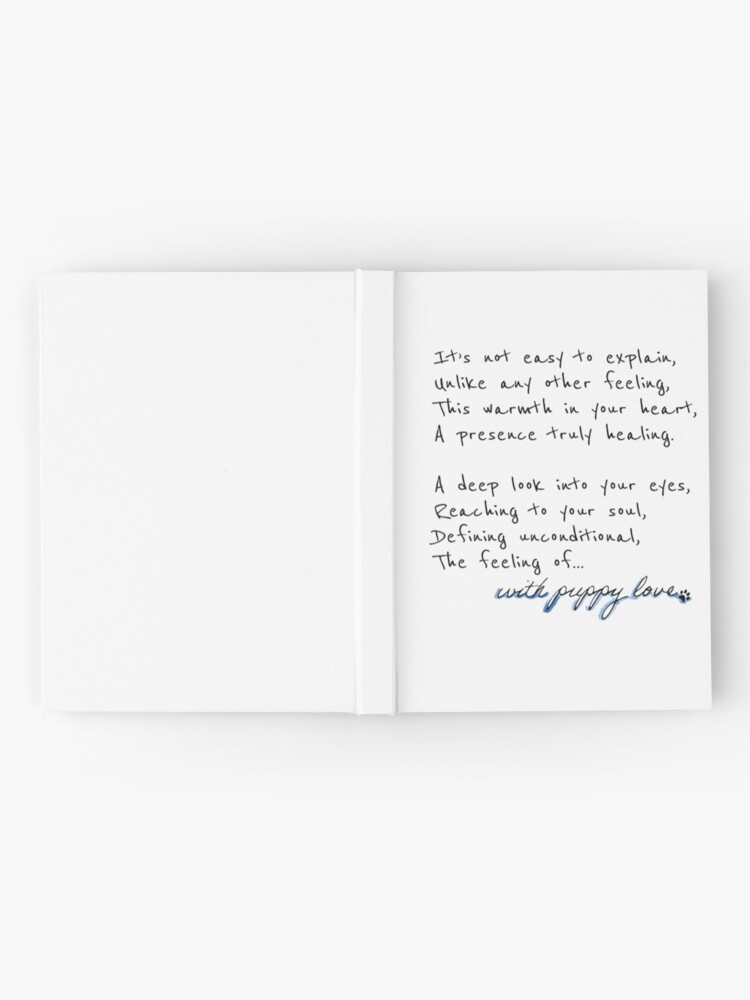 It's not easy to explain,
Unlike any other feeling,
This warmth in your heart,
A presence truly healing.
A deep look into your eyes,
Reaching to your soul,
Defining unconditional,
The feeling of...
with puppy love